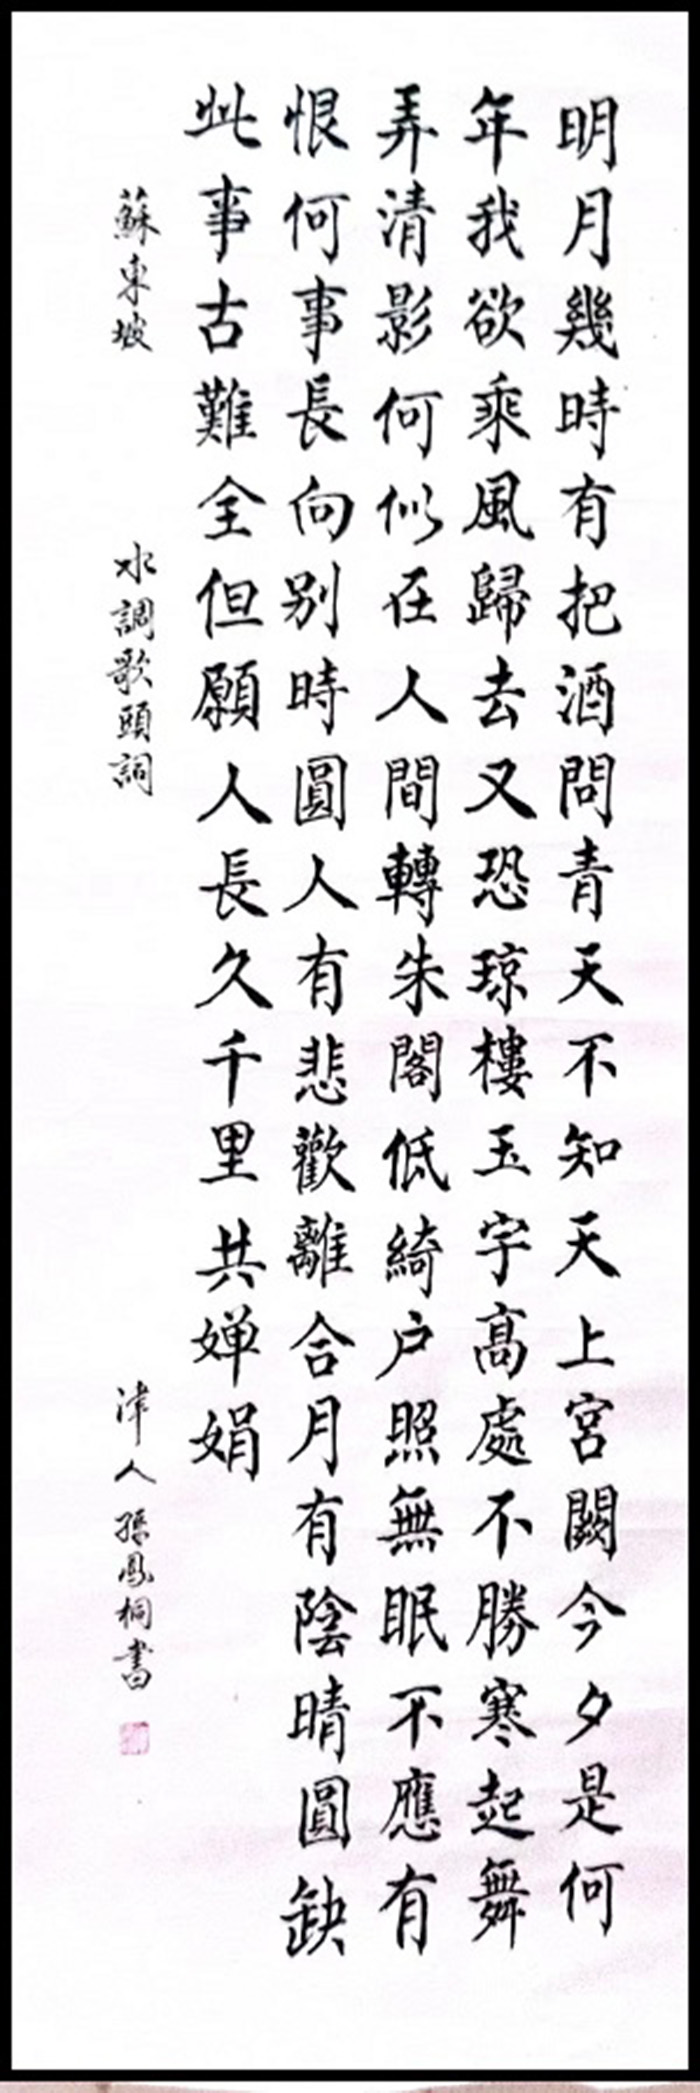 明月幾時有把酒問青天不知天上宮闕今夕是何
年我欲乘風歸去又恐瓊樓玉宇高處不勝寒起舞
弄清影何似在人間轉朱閣低綺户照無眠不應有
恨何事長向别時圓人有悲歡離合月有陰晴圓缺
此事古難全但願人長久千里共嬋娟
蘇東坡 水調歌頭詞 津人孫鳳桐書